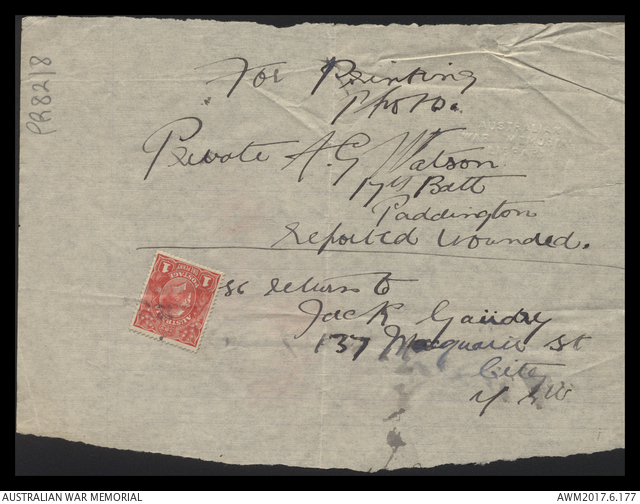 PR82/8
For Printing
Photo.
Private A.G Watson
17th Batt
Paddington
reported wounded.
se return to
Jack Gaudry
137 Macquarie St
City
N.S.W
1 POSTAGE 1
AUSTRALIA
AUSTRALIAN WAR MEMORIAL
AWM2017.6.177